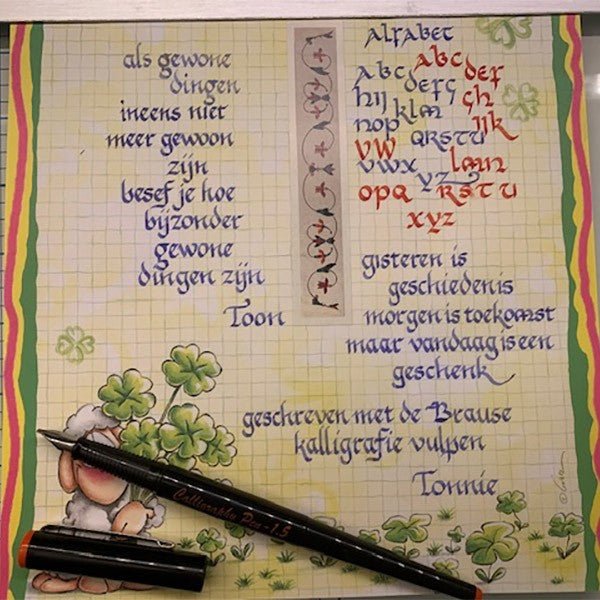 als gewone
dingen
ineens niet
meer gewoon
zijn
besef je hoe
bijzonder
gewone
dingen zijn
Toon
alfabet
abc
abc def
defg
hij klm gh
nop ijk
qrstu
vw
vwx lmn
yz
opq rstu
xyz
gisteren is
geschiedenis
morgen is toekomst
maar vandaag is een
geschenk
geschreven met de Brause
kalligrafie vulpen
Tonnie
Calligraphy Pen - 1.5